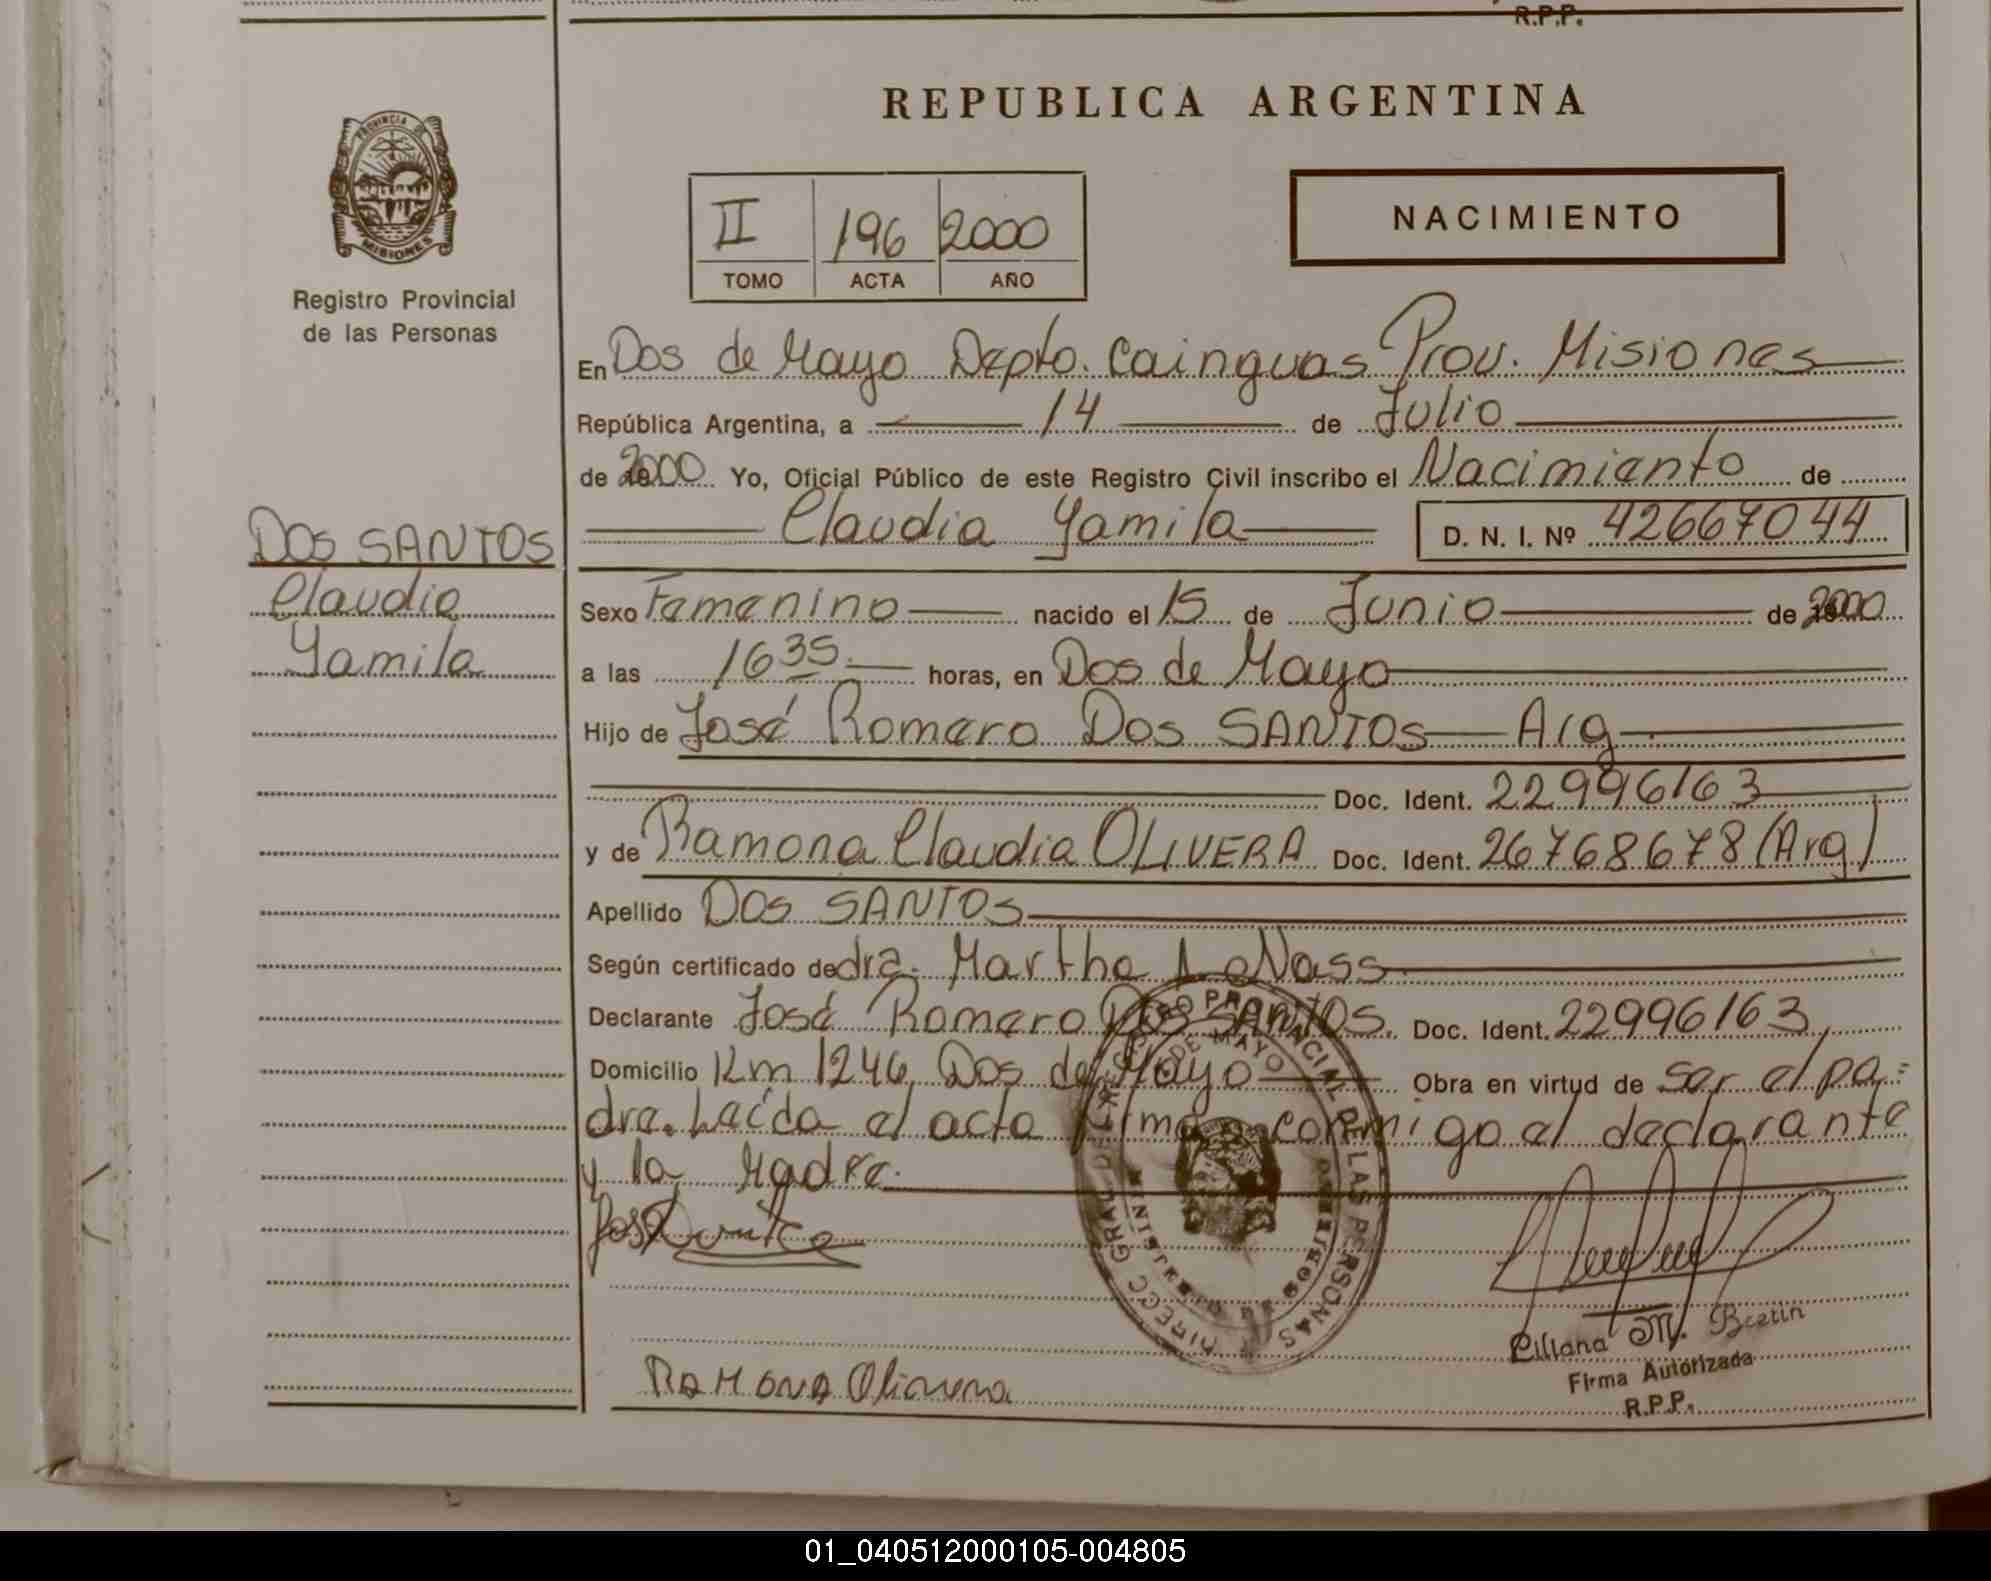 R.P.P.
REPUBLICA ARGENTINA
PROVINCIA DE
MISIONES
Registro Provincial
de las Personas
II 196 2000
TOMO ACTA AÑO
NACIMIENTO
En Dos de Mayo Depto. Cainguas Prov. Misiones
República Argentina, a 14 de Julio
de 2000 Yo, Oficial Público de este Registro Civil inscribo el Nacimiento de
Claudia Yamila D. N. I. Nº 42667044
DOS SANTOS
Claudia
Yamila
Sexo Femenino nacido el 15 de Junio de 2000
a las 1635 horas, en Dos de Mayo
Hijo de José Romero Dos SANTOS Arg
Doc. Ident. 22996163
y de Ramona Claudia OLIVERA Doc. Ident. 26768678 (Arg)
Apellido DOS SANTOS
Según certificado de dra. Martha Nass
Declarante José Romero Dos SANTOS. Doc. Ident. 22996163,
Domicilio Km 1246, Dos de Mayo Obra en virtud de ser el pa=
dre. Leída el acta firma conmigo el declarante
y la Madre.
DIRECC. GRAL. DEL REGISTRO PROVINCIAL DE LAS PERSONAS
DOS DE MAYO
MINISTERIO DE GOBIERNO
José
RAMONA Olivera
Liliana M. Bretin
Firma Autorizada
R.P.P.
01_040512000105-004805